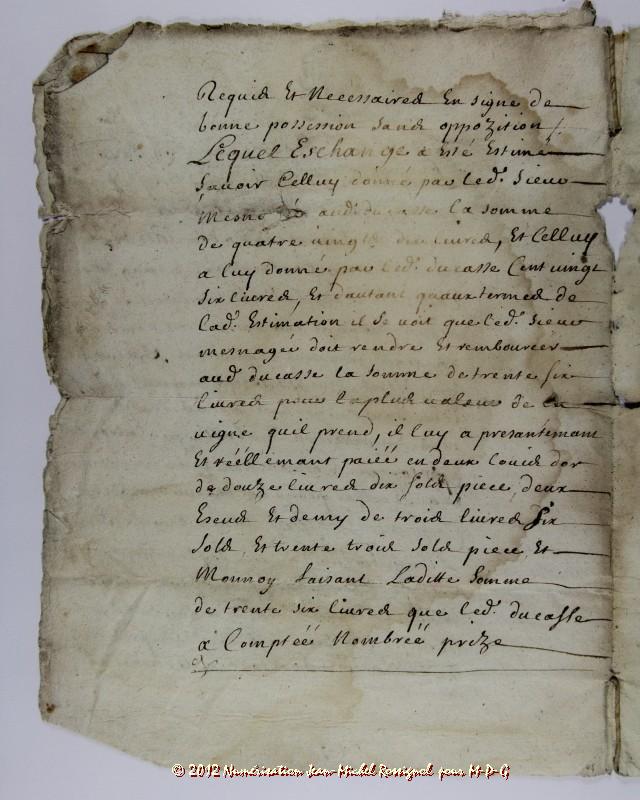 Requis Et Necessaires En signe de
bonne possession sans oppozition /.
Lequel Eschange a Esté Estimé
Sauoir Celluy donné par led.t sieur
audt ducasse la somme
de quatre uingts dix liures, Et Celluy
a luy donné par led.t ducasse Cent uingt
six liures, Et d'autant quaux termes de
lad.t Estimation il se uoit que led.t sieur
mesnagée doit rendre Et rembourcer
aud.t ducasse la somme de trente six
liures pour la plus ualeur de la
uigne quil prend, il luy a presantemant
Et réellémant paiéé en deux Louis dor
de douze liures dix sols piece, deux
Escus Et demy de trois liures six
sols, Et trente trois sols piece, Et
Monnoy faisant Laditte somme
de trente six liures que led.t ducasse
a Comptéé Nombréé prize
© 2012 Numérisation Jean-Michel Rossignol pour M-P-G